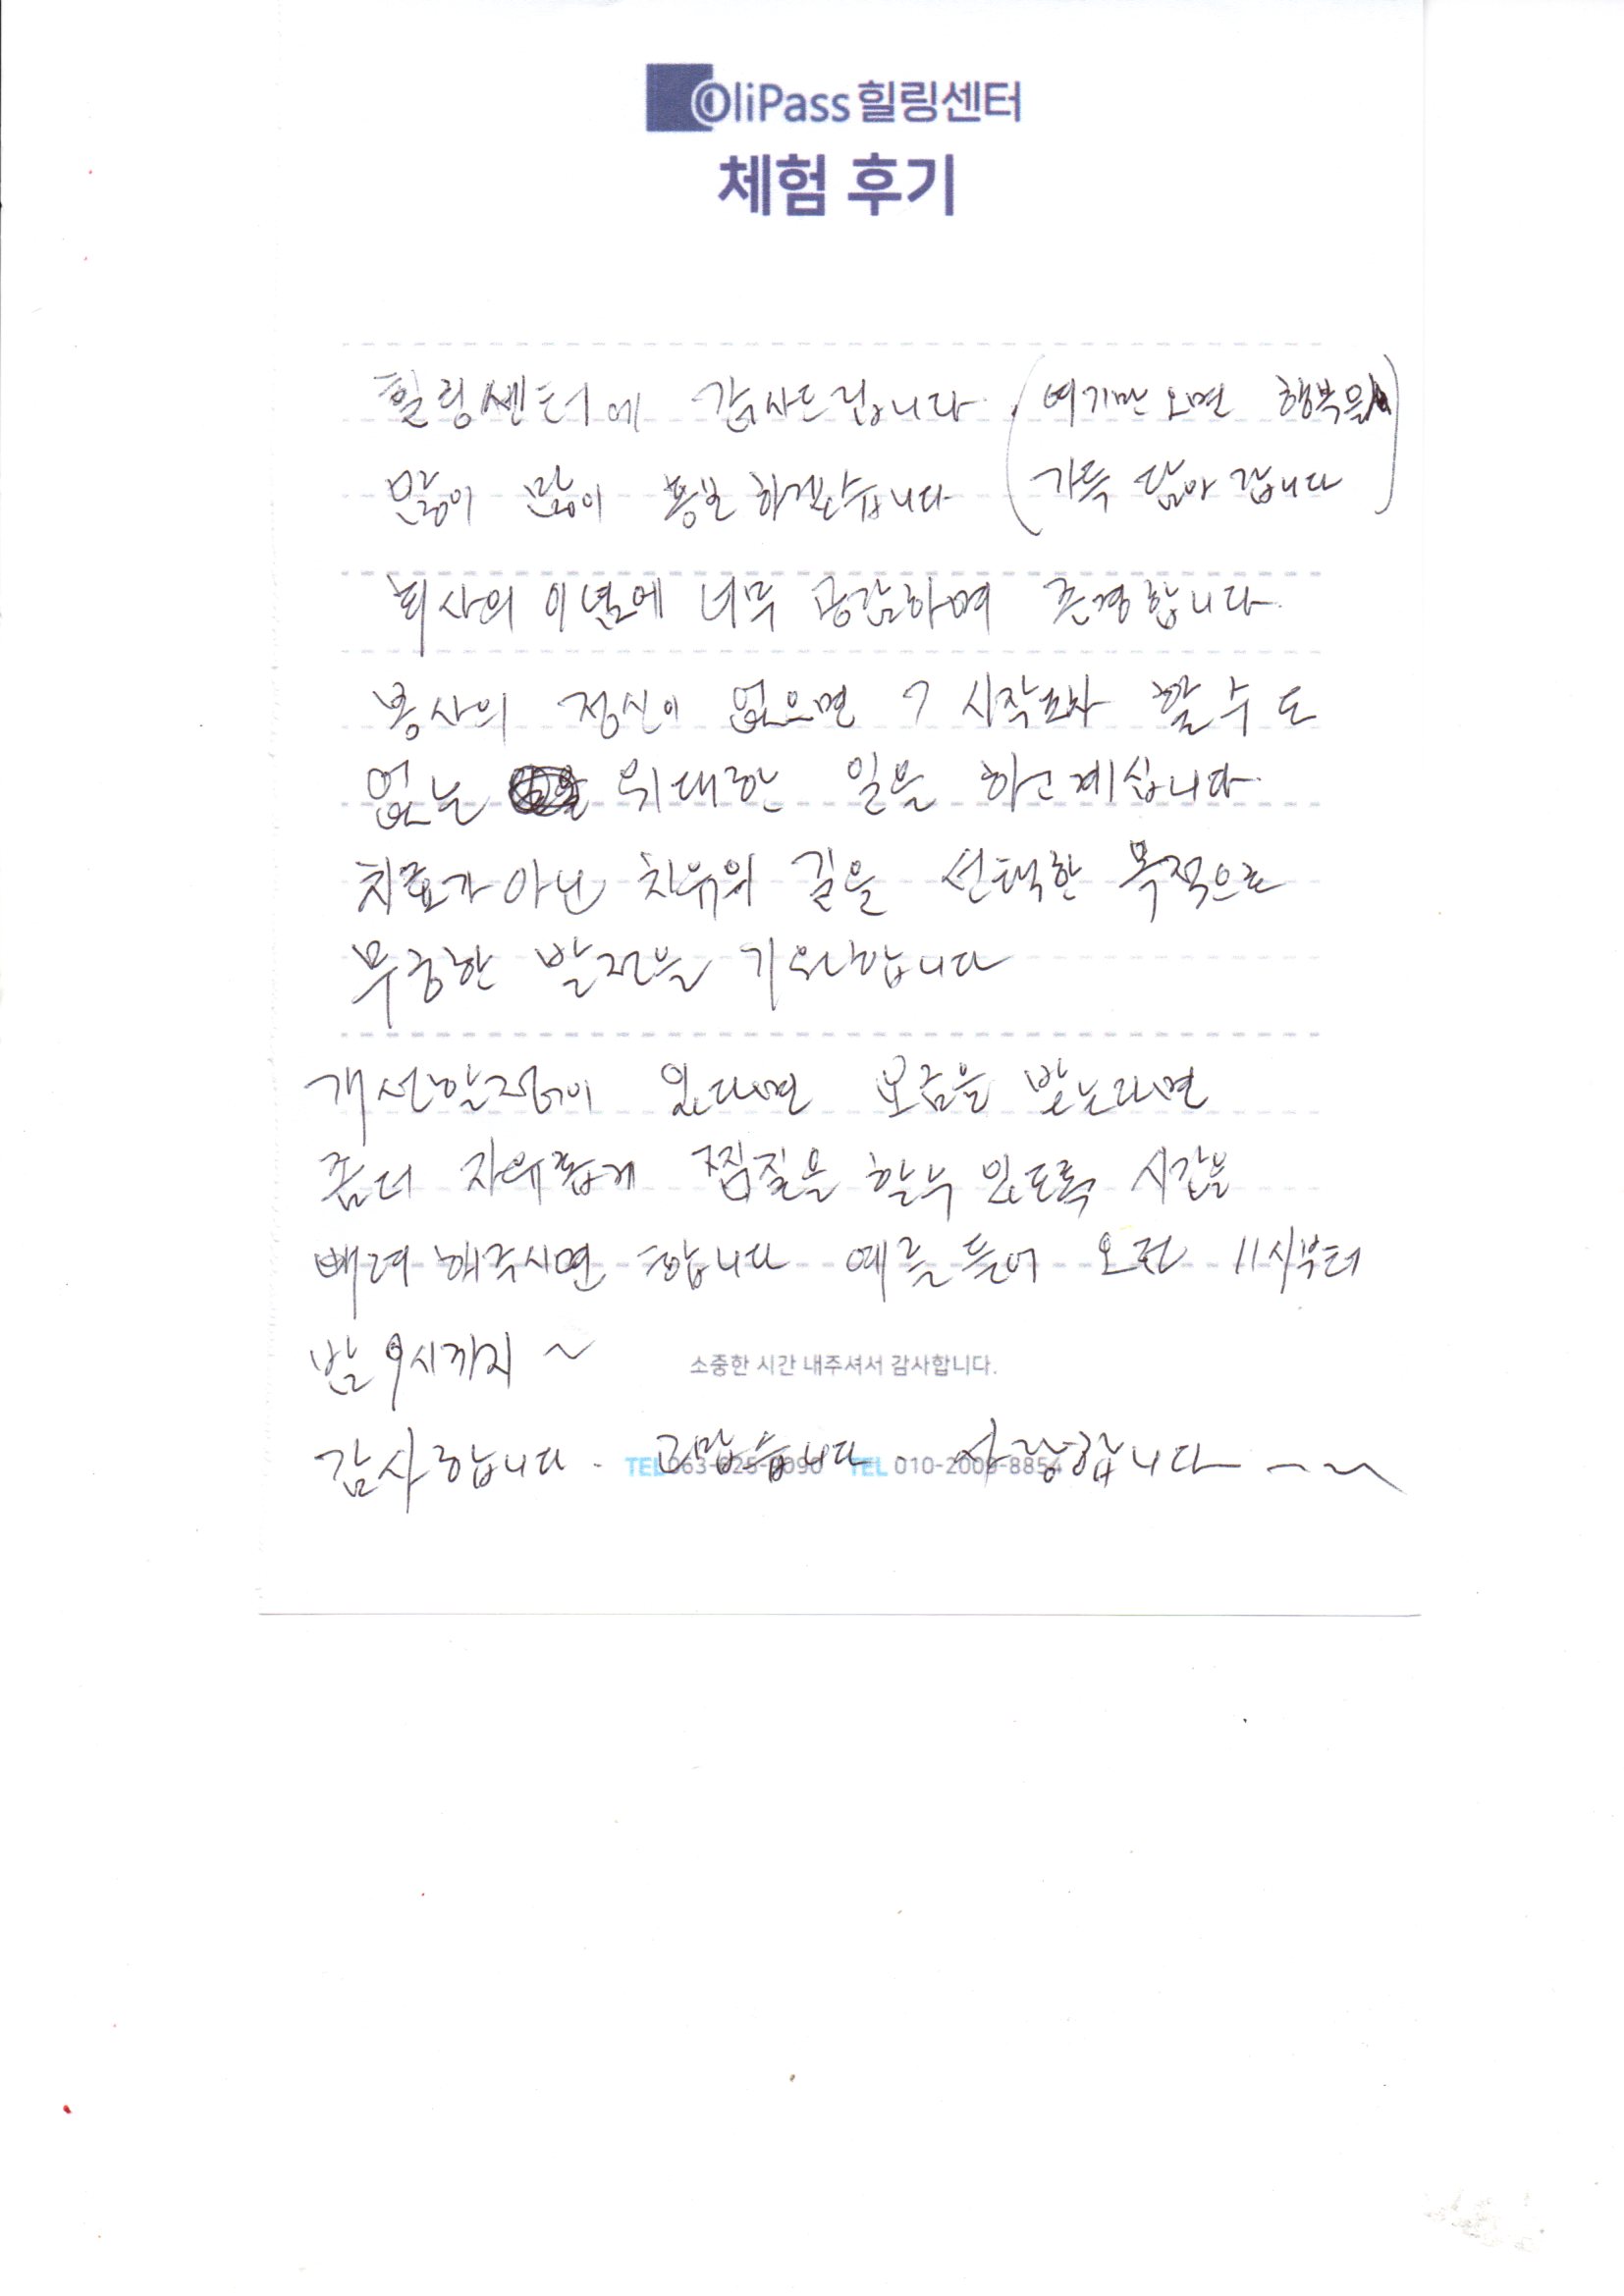 OliPass 힐링센터
체험 후기
힐링센터에 감사드립니다. (여기만 오면 행복을
많이 많이 홍보 하겠습니다 가득 담아 갑니다)
회사의 이념에 너무 공감하며 존경합니다.
봉사의 정신이 없으면 시작조차 할 수 도
없는 위대한 일을 하고 계십니다.
치료가 아닌 치유의 길을 선택한 목적으로
무궁한 발전을 기원합니다
개선할점이 있다면 모금을 받는다면
좀더 자유롭게 찜질을 할수 있도록 시간을
빼려 해주시면 합니다 예를들어 오전 11시부터
밤 9시까지 ~
소중한 시간 내주셔서 감사합니다.
감사합니다. 고맙습니다. 사랑합니다 ~~
TEL TEL 010-2009-8854